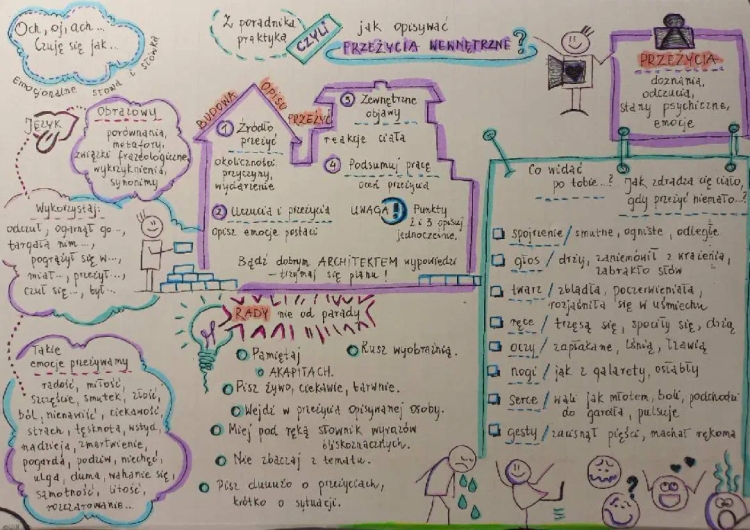 Z poradnika
praktyka
CZYLI
jak opisywać
PRZEŻYCIA WEWNĘTRZNE?
Och, oj, ach...
Czuję się jak...
Emocjonalne słowa i słówka
JĘZYK
Obrazowy
porównania,
metafory,
związki frazeologiczne,
wykrzyknienia,
synonimy
Wykorzystaj:
odczuł, ogarnął go...,
targała nim...,
pogrążył się w...,
miał..., przeżył...,
czuł się..., był...
Takie
emocje przeżywamy
radość, miłość,
szczęście, smutek, złość,
ból, nienawiść, ciekawość,
strach, tęsknota, wstyd,
nadzieja, zmartwienie,
pogarda, podziw, niechęć,
ulga, duma, wahanie się,
samotność, litość,
rozczarowanie...
BUDOWA OPISU PRZEŻYĆ
1 Źródło
przeżyć
okoliczności,
przyczyny,
wydarzenie
2 Uczucia i przeżycia
opisz emocje postaci
3 Zewnętrzne
objawy
reakcje ciała
4 Podsumuj pracę
oceń przeżycia
UWAGA! Punkty
2 i 3 opisuj
jednocześnie.
Bądź dobrym ARCHITEKTEM wypowiedzi
– trzymaj się planu!
RADY nie od parady
Pamiętaj
o AKAPITACH.
Rusz wyobraźnią.
Pisz żywo, ciekawie, barwnie.
Wejdź w przeżycia opisywanej osoby.
Miej pod ręką słownik wyrazów
bliskoznacznych.
Nie zbaczaj z tematu.
Pisz duuużo o przeżyciach,
krótko o sytuacji.
PRZEŻYCIA
doznania,
odczucia,
stany psychiczne,
emocje
Co widać
po tobie...?
Jak zdradza cię ciało,
gdy przeżyć niemało...?
spojrzenie / smutne, ogniste, odległe
głos / drży, zaniemówił z wrażenia,
zabrakło słów
twarz / zbladła, poczerwieniała,
rozjaśniła się w uśmiechu
ręce / trzęsą się, spociły się, drżą
oczy / zapłakane, lśnią, łzawią
nogi / jak z galarety, osłabły
serce / wali jak młotem, boli, podchodzi
do gardła, pulsuje
gesty / zacisnął pięści, machał rękoma